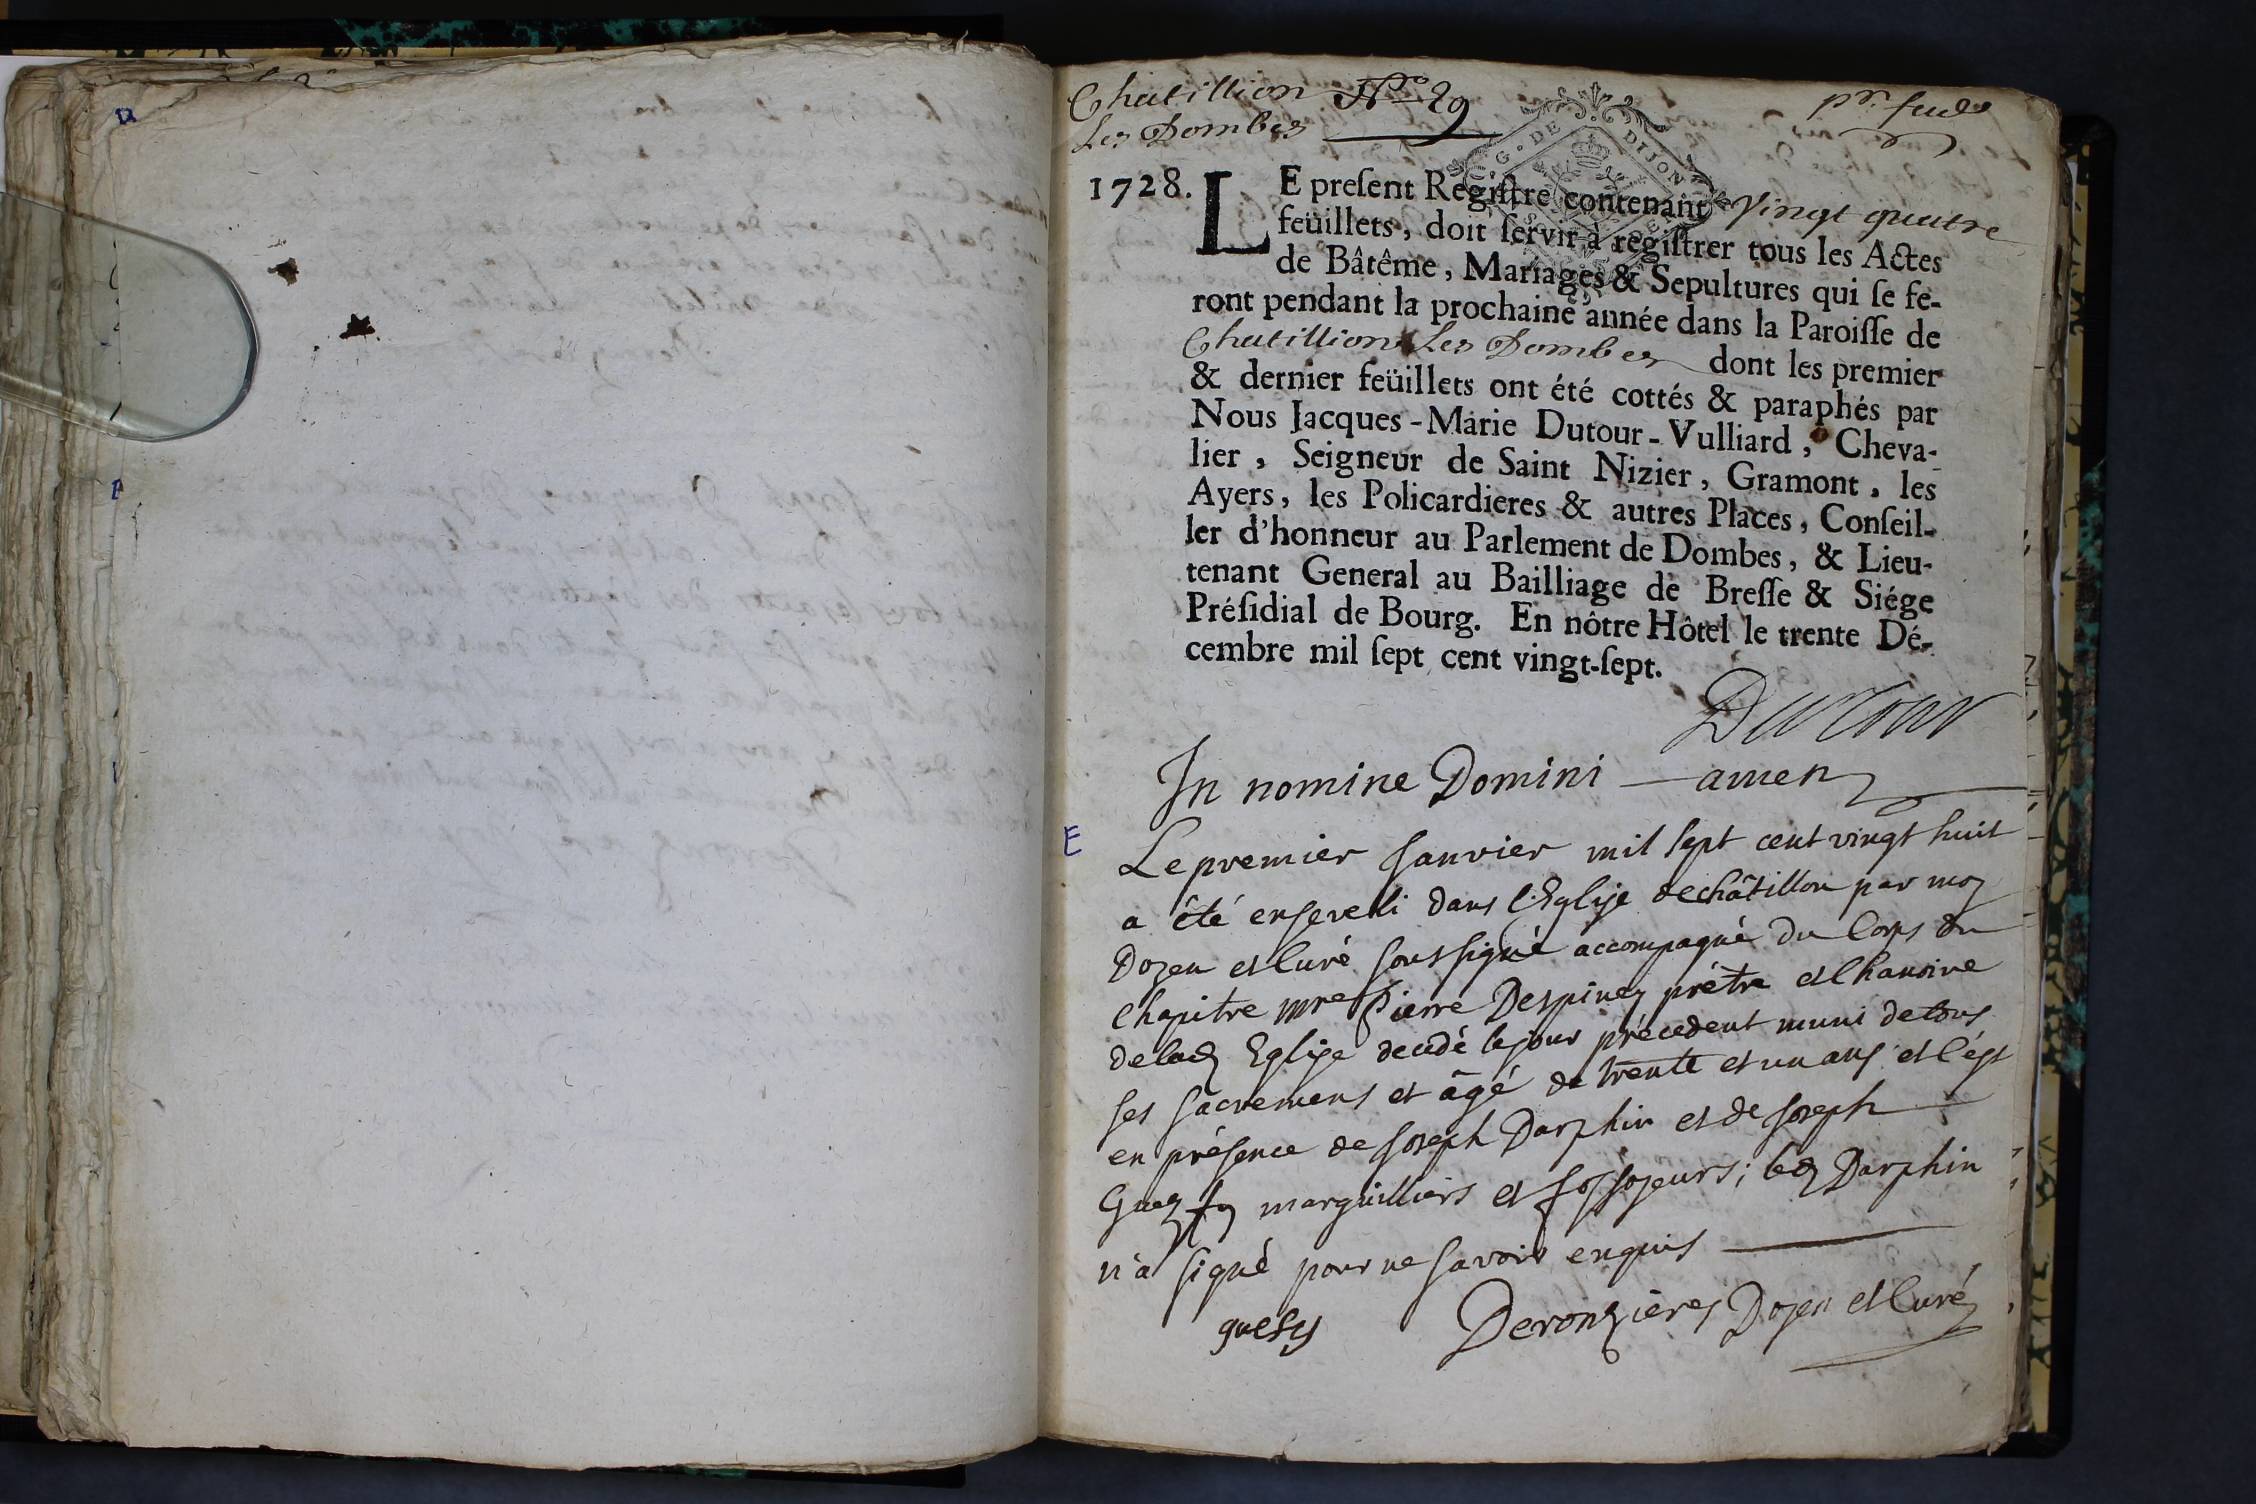 Chatillion N.º 29
Les Dombes
G. DE DIJON
1728. LE preſent Regiſtre contenant vingt quatre
feüillets, doit ſervir à regiſtrer tous les Actes
de Bâtême, Mariages & Sepultures qui ſe fe-
ront pendant la prochaine année dans la Paroiſſe de
Chatillion Les Dombes dont les premier
& dernier feüillets ont été cottés & paraphés par
Nous Jacques-Marie Dutour-Vulliard, Cheva-
lier, Seigneur de Saint Nizier, Gramont, les
Ayers, les Policardieres & autres Places, Conſeil-
ler d'honneur au Parlement de Dombes, & Lieu-
tenant General au Bailliage de Breſſe & Siége
Préſidial de Bourg. En nôtre Hôtel le trente Dé-
cembre mil ſept cent vingt-ſept.
Dutour
In nomine Domini — amen
E
Le premier Janvier mil sept cent vingt huit
a été enseveli dans l'Eglise de châtillon par moy
Doyen et Curé soussigné accompagné du Corps du
Chapitre mre Pierre Despiney prétre et Chanoine
de lad Eglise decedé le jour précedent muni de tous
ses sacremens et âgé de trente et un ans et c'ést
en présence de Joseph Darphin et de Joseph
marguilliers et fossoyeurs; led Darphin
n'a signé pour ne savoir enquis
guesy Deronzières Doyen et Curé